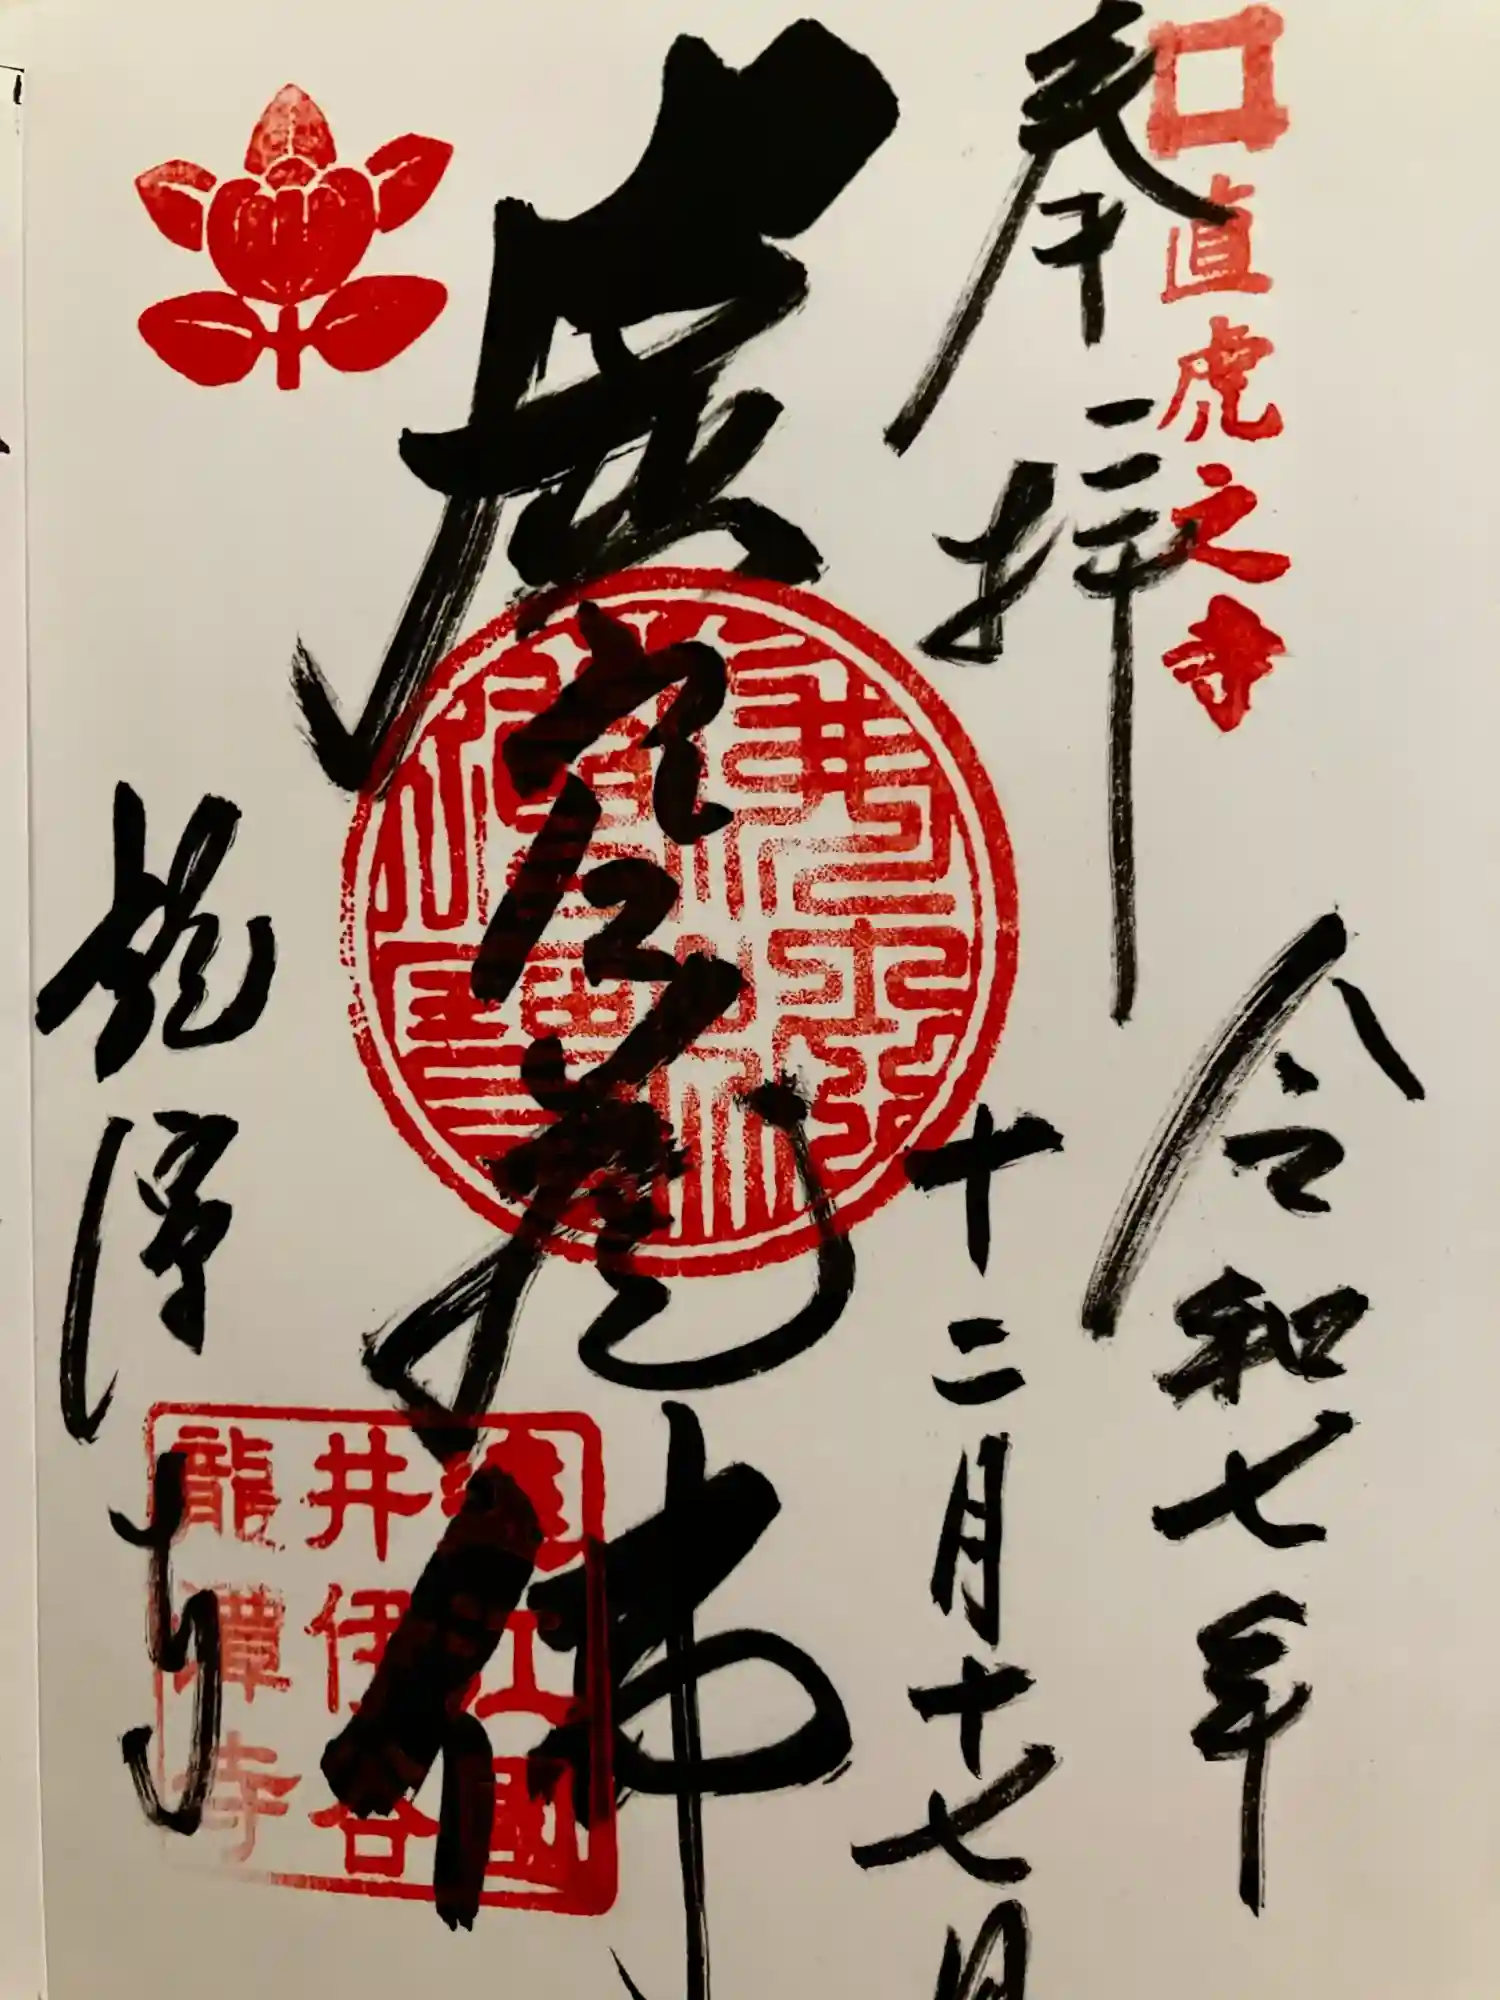 直虎之寺
奉拝
令和七年
十二月十七日
虚空蔵佛
龍潭寺
遠江國
井伊谷
龍潭寺